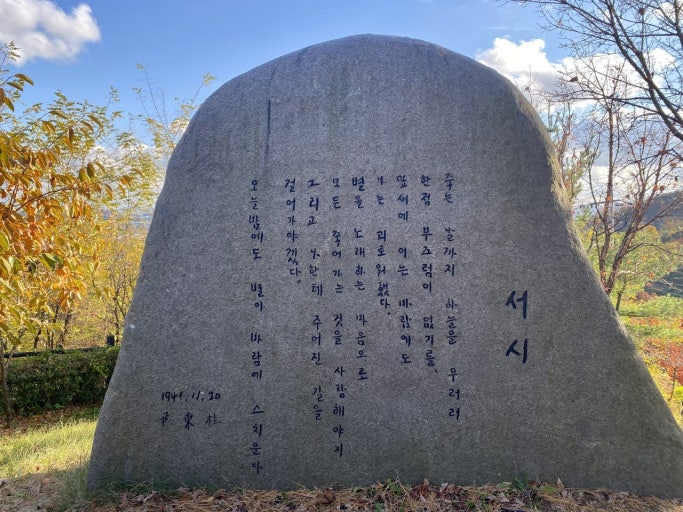 서시
죽는 날까지 하늘을 우러러
한점 부끄럼이 없기를,
잎새에 이는 바람에도
나는 괴로워했다.
별을 노래하는 마음으로
모든 죽어가는 것을 사랑해야지
그리고 나한테 주어진 길을
걸어가야겠다.
오늘밤에도 별이 바람에 스치운다
1941. 11. 20
尹東柱